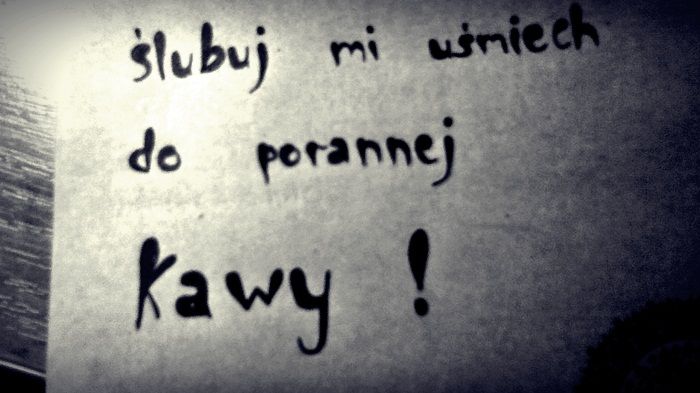 ślubuj mi uśmiech
do porannej
Kawy !